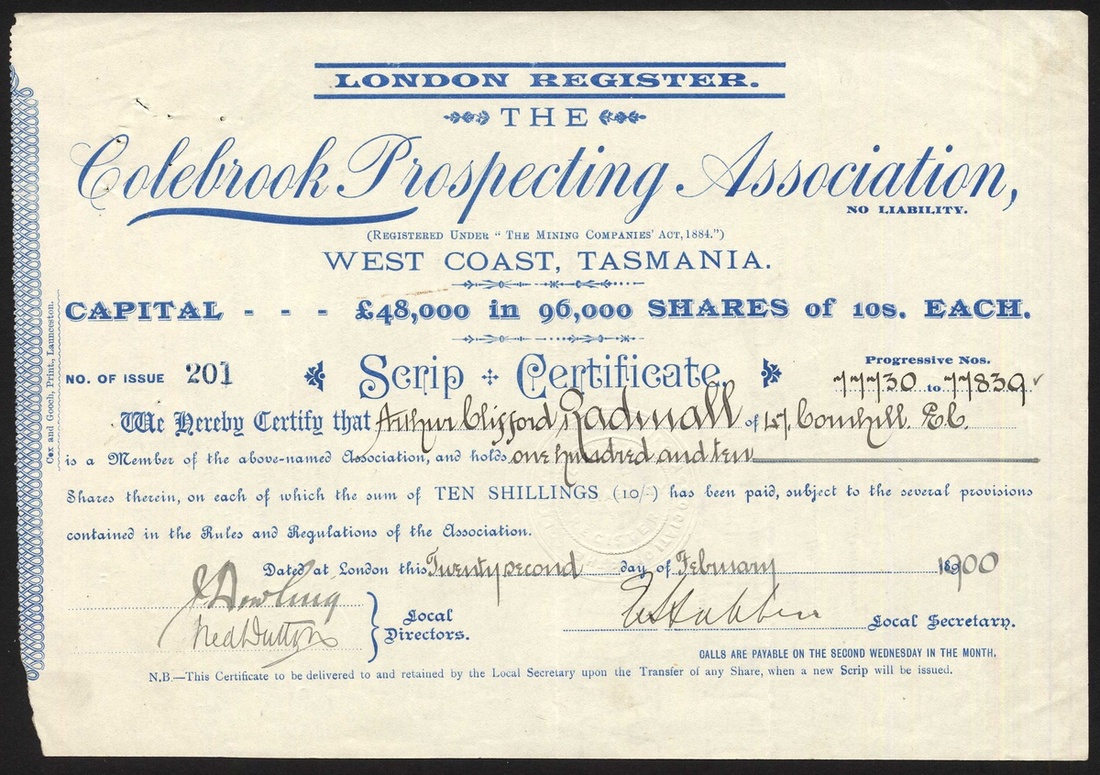 LONDON REGISTER.
THE
Colebrook Prospecting Association,
NO LIABILITY.
(REGISTERED UNDER "THE MINING COMPANIES' ACT, 1884.")
WEST COAST, TASMANIA.
CAPITAL - - - £48,000 in 96,000 SHARES of 10s. EACH.
NO. OF ISSUE 201 Scrip Certificate. Progressive Nos.
77730 to 77839
We Hereby Certify that Arthur Clifford Radmall of 57, Cornhill E.C.
is a Member of the above-named Association, and holds one hundred and ten
Shares therein, on each of which the sum of TEN SHILLINGS (10/-) has been paid, subject to the several provisions
contained in the Rules and Regulations of the Association.
Dated at London this Twenty second day of February 1900
J Dowling
Local Directors.
Local Secretary.
CALLS ARE PAYABLE ON THE SECOND WEDNESDAY IN THE MONTH.
N.B.—This Certificate to be delivered to and retained by the Local Secretary upon the Transfer of any Share, when a new Scrip will be issued.
Cox and Gooch, Print., Launceston.